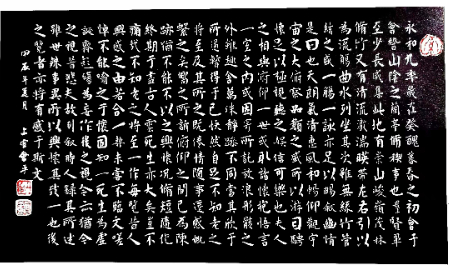 永和九年歲在癸醜暮春之初會于
會稽山陰之蘭亭脩禊事也羣賢畢
至少長咸集此地有崇山峻嶺茂林
脩竹又有清流激湍映帶左右引以
為流觴曲水列坐其次雖無絲竹管
絃之盛一觴一詠亦足以暢敘幽情
是日也天朗氣清惠風和暢仰觀宇
宙之大俯察品類之盛所以遊目騁
懷足以極視聽之娛信可樂也夫人
之相與俯仰一世或取諸懷抱悟言
一室之內或因寄所託放浪形骸之
外雖趣舍萬殊靜躁不同當其欣于
所遇暫得于己快然自足不知老之
將至及其所之既倦情隨事遷感慨
繫之矣向之所欣俯仰之間已為陳
跡猶不能不以之興懷況脩短隨化
終期于盡古人云死生亦大矣豈不
痛哉不知老之將至一作每覽昔人
興感之由若合一契未嘗不臨文嗟
悼不能喻之于懷固知一死生為虛
誕齊彭殤為妄作後之視今亦猶今
之視昔悲夫故列敘時人錄其所述
雖世殊事異所以興懷其致一也後
之覽者亦將有感于斯文
年夏月